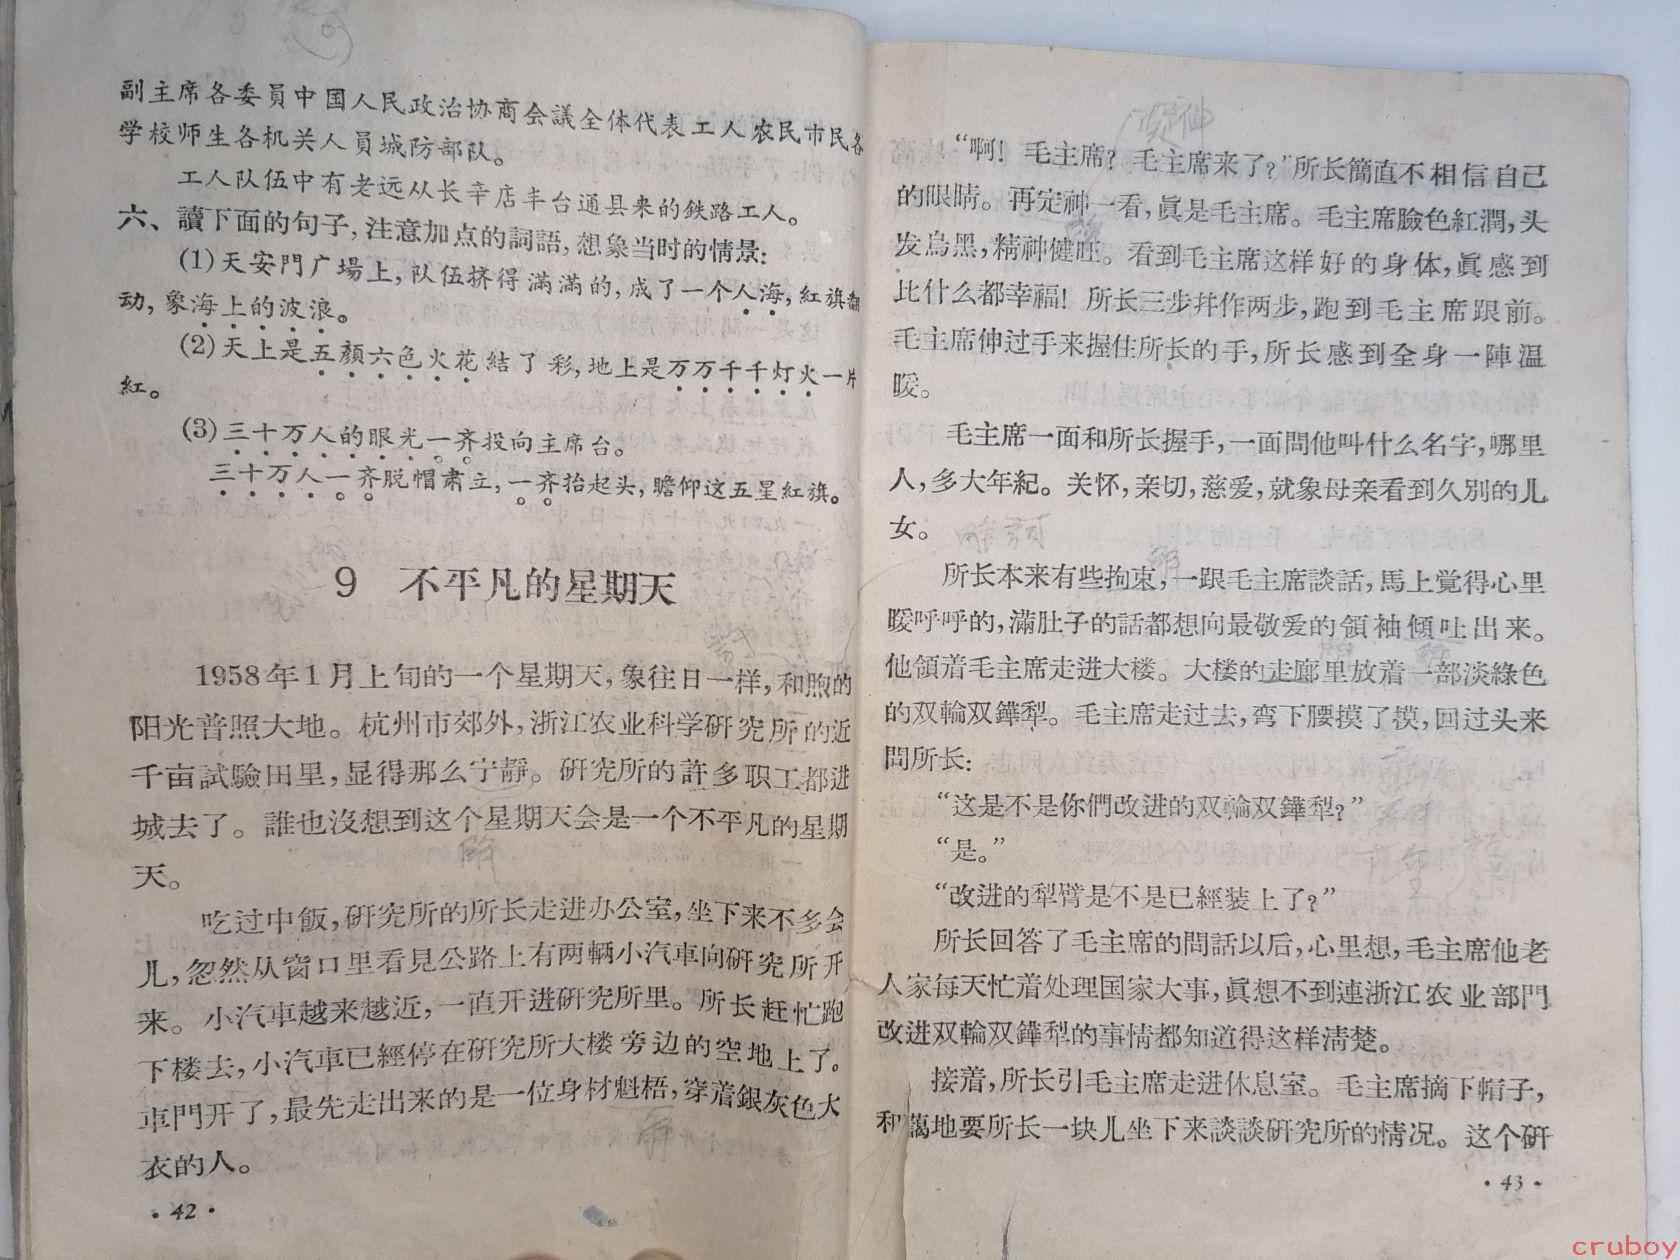 副主席各委員中国人民政治协商会議全体代表工人农民市民各
学校师生各机关人員城防部队。
工人队伍中有老远从长辛店丰台通县来的鉄路工人。
六、讀下面的句子,注意加点的詞語,想象当时的情景:
(1)天安門广場上,队伍挤得滿滿的,成了一个人海,紅旗翻
动,象海上的波浪。
(2)天上是五顏六色火花結了彩,地上是万万千千灯火一片
紅。
(3)三十万人的眼光一齐投向主席台。
三十万人一齐脱帽肃立,一齐抬起头,瞻仰这五星紅旗。
9 不平凡的星期天
1958年1月上旬的一个星期天,象往日一样,和煦的
阳光普照大地。杭州市郊外,浙江农业科学研究所的近
千亩試驗田里,显得那么宁靜。研究所的許多职工都进
城去了。誰也沒想到这个星期天会是一个不平凡的星期
天。
吃过中飯,研究所的所长走进办公室,坐下来不多会
儿,忽然从窗口里看見公路上有两輛小汽車向研究所开
来。小汽車越来越近,一直开进研究所里。所长赶忙跑
下楼去,小汽車已經停在研究所大楼旁边的空地上了。
車門开了,最先走出来的是一位身材魁梧,穿着銀灰色大
衣的人。
·42·
“啊!毛主席?毛主席来了?”所长簡直不相信自己
的眼睛。再定神一看,眞是毛主席。毛主席臉色紅潤,头
发烏黑,精神健旺。看到毛主席这样好的身体,眞感到
比什么都幸福!所长三步并作两步,跑到毛主席跟前。
毛主席伸过手来握住所长的手,所长感到全身一陣温
暖。
毛主席一面和所长握手,一面問他叫什么名字,哪里
人,多大年紀。关怀,亲切,慈爱,就象母亲看到久別的儿
女。
所长本来有些拘束,一跟毛主席談話,馬上覚得心里
暖呼呼的,滿肚子的話都想向最敬爱的領袖傾吐出来。
他領着毛主席走进大楼。大楼的走廊里放着一部淡綠色
的双輪双鏵犁。毛主席走过去,弯下腰摸了摸,回过头来
問所长:
“这是不是你們改进的双輪双鏵犁?”
“是。”
“改进的犁臂是不是已經装上了?”
所长回答了毛主席的問話以后,心里想,毛主席他老
人家每天忙着处理国家大事,眞想不到連浙江农业部門
改进双輪双鏵犁的事情都知道得这样清楚。
接着,所长引毛主席走进休息室。毛主席摘下帽子,
和藹地要所长一块儿坐下来談談研究所的情况。这个研
·43·
cruboy